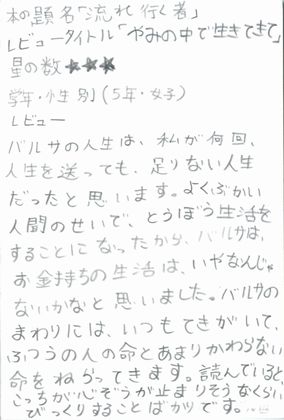 本の題名「流れ行く者」
レビュータイトル「やみの中で生きてきて」
星の数★★★
学年・性別(5年・女子)
レビュー
バルサの人生は、私が何回、
人生を送っても、足りない人生
だったと思います。よくぶかい
人間のせいで、とうぼう生活を
することになったから、バルサは、
お金持ちの生活は、いやなんじゃ
ないかなと思いました。バルサの
まわりには、いつもてきがいて、
ふつうの人の命とあまりかわらない
命をねらってきます。読んでいると、
こっちが心ぞうが止まりそうなくらい
びっくりすることばかりです。